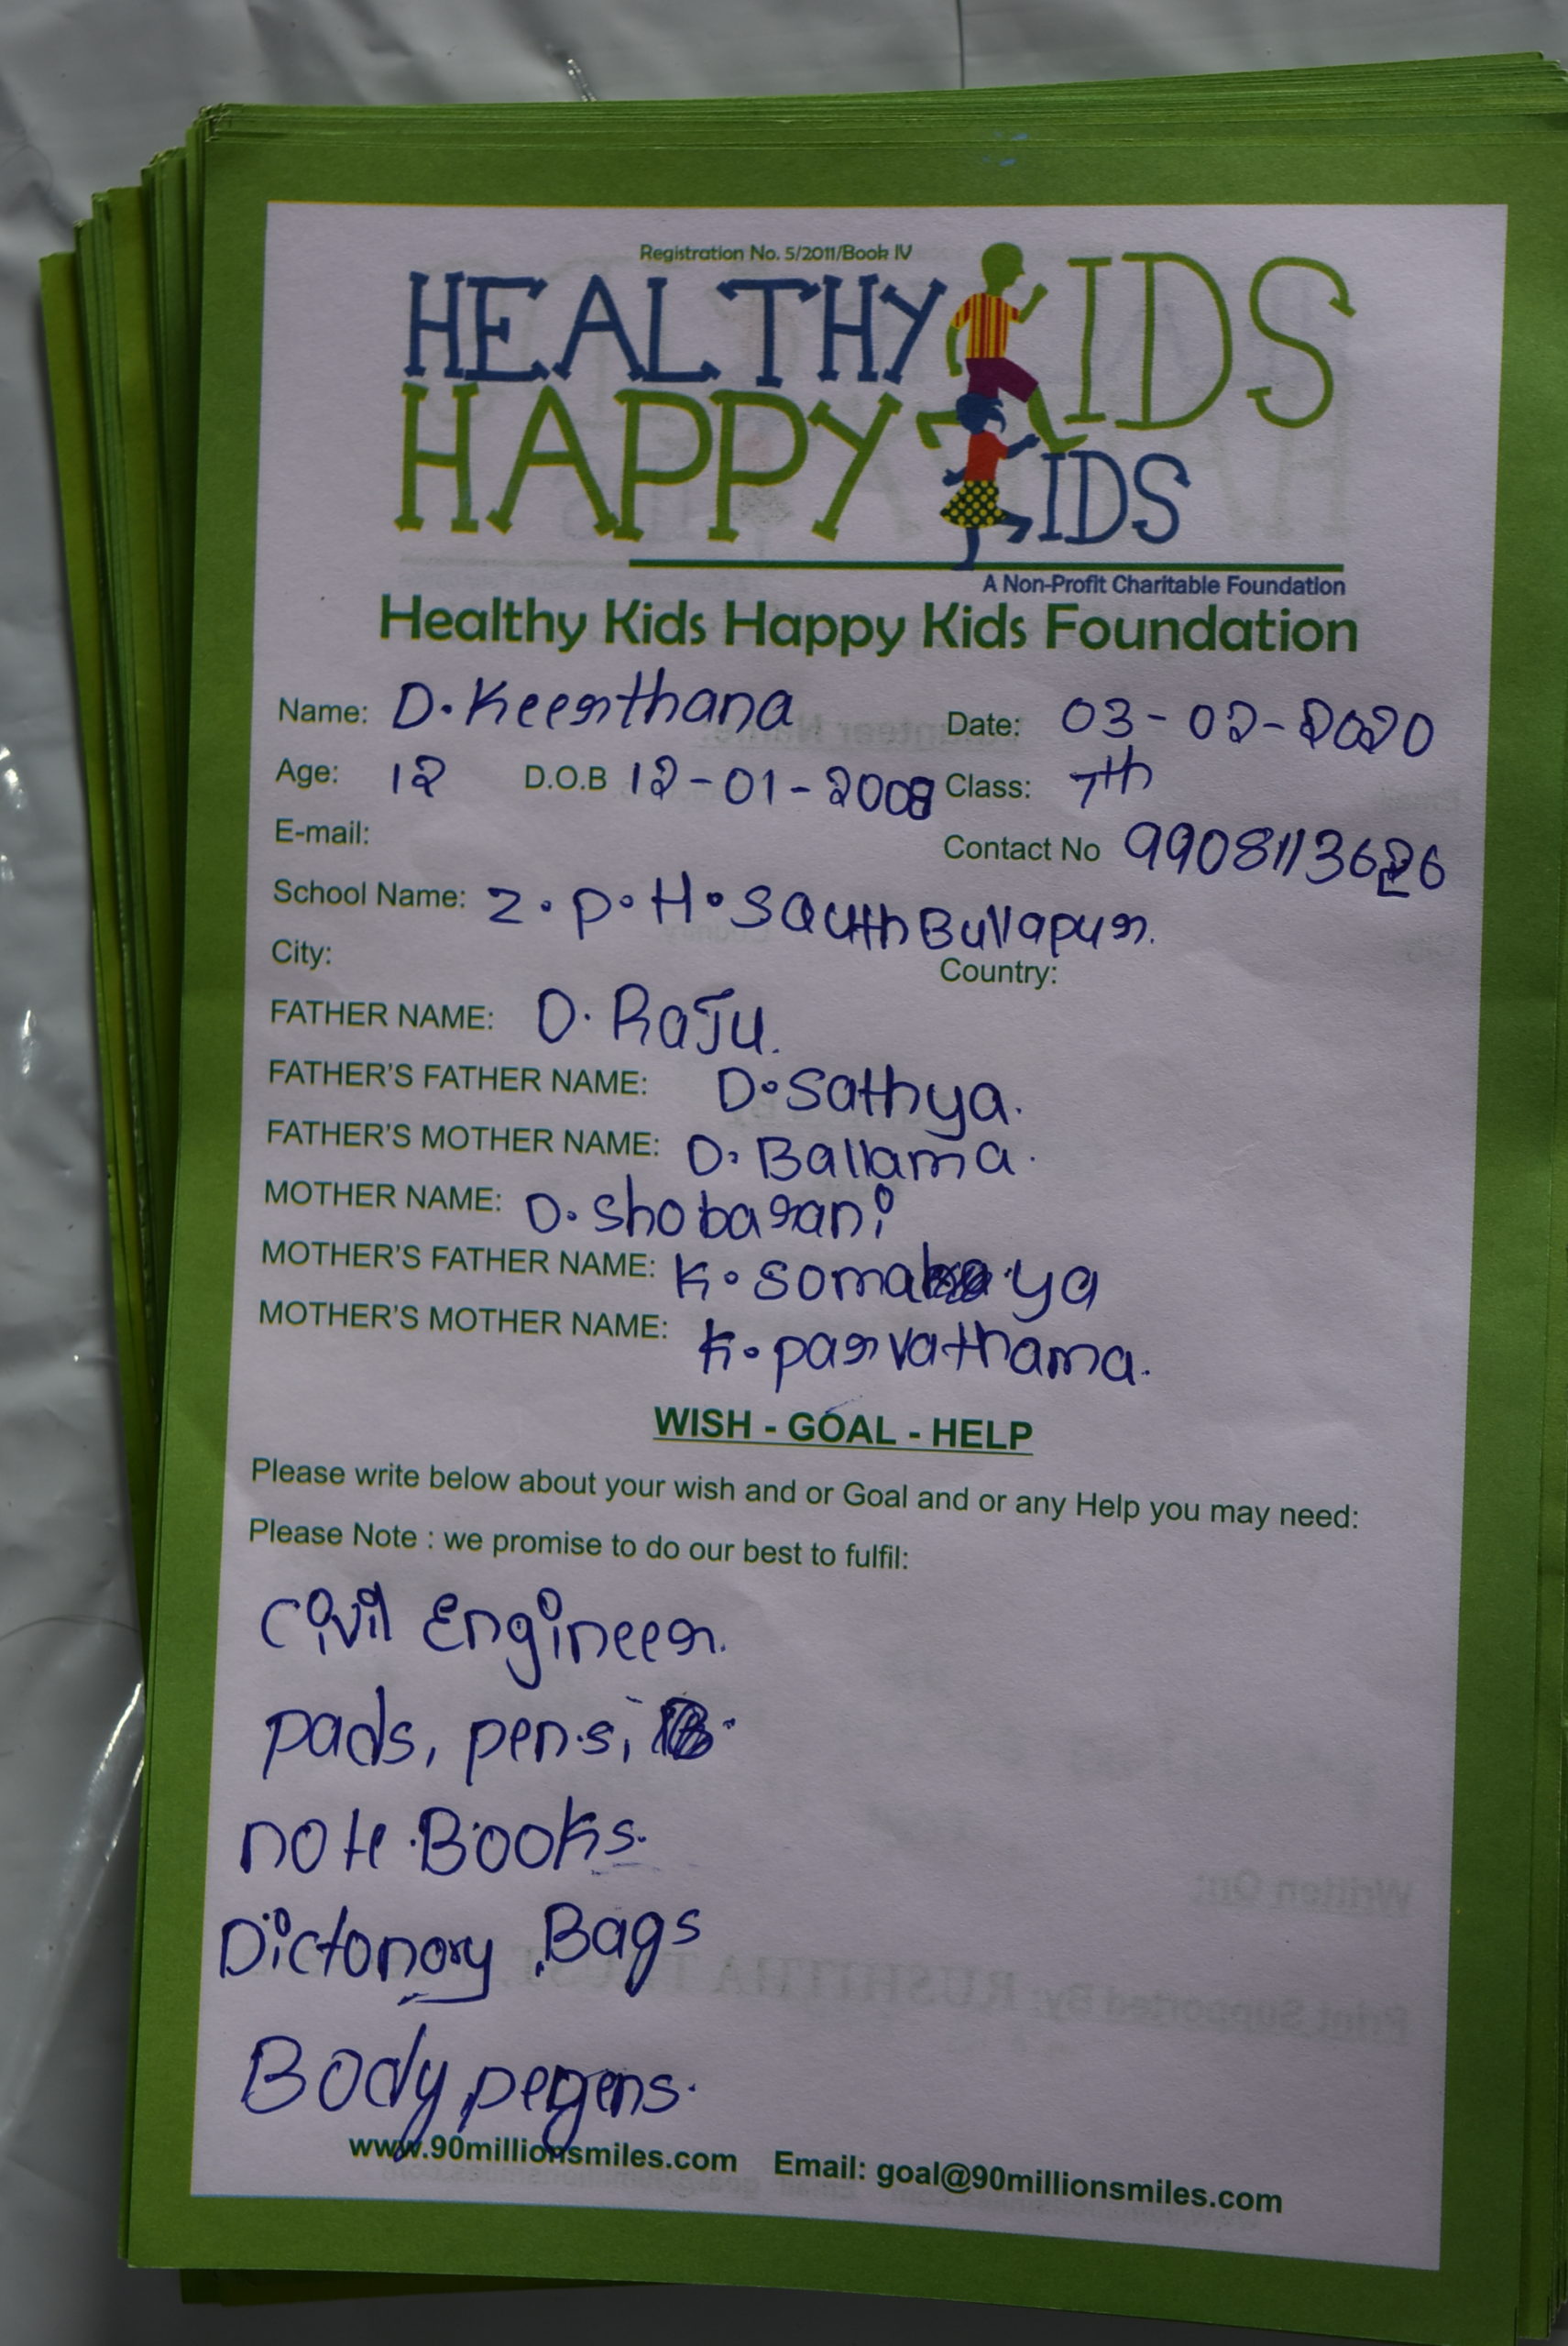 Registration No. 5/2011/Book IV
HEALTHY KIDS
HAPPY KIDS
A Non-Profit Charitable Foundation
Healthy Kids Happy Kids Foundation
Name: D. Keerthana Date: 03-02-2020
Age: 12 D.O.B 12-01-2008 Class: 7th
E-mail: Contact No 9908113626
School Name: Z.P.H.S Quthbullapur.
City: Country:
FATHER NAME: D. Raju.
FATHER'S FATHER NAME: D. Sathya.
FATHER'S MOTHER NAME: D. Ballama.
MOTHER NAME: D. Shobarani
MOTHER'S FATHER NAME: K. Soma ya
MOTHER'S MOTHER NAME: K. parvathama.
WISH - GOAL - HELP
Please write below about your wish and or Goal and or any Help you may need:
Please Note : we promise to do our best to fulfil:
Civil Engineer.
pads, pens,
note Books.
Dictonory, Bags
Body
www.90millionsmiles.com Email: goal@90millionsmiles.com